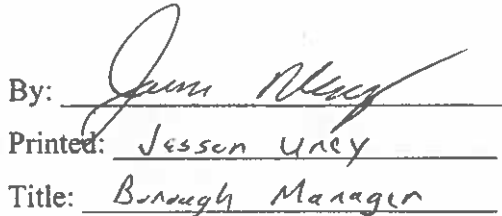 By:
Printed: Jessen Urey
Title: Borough Manager